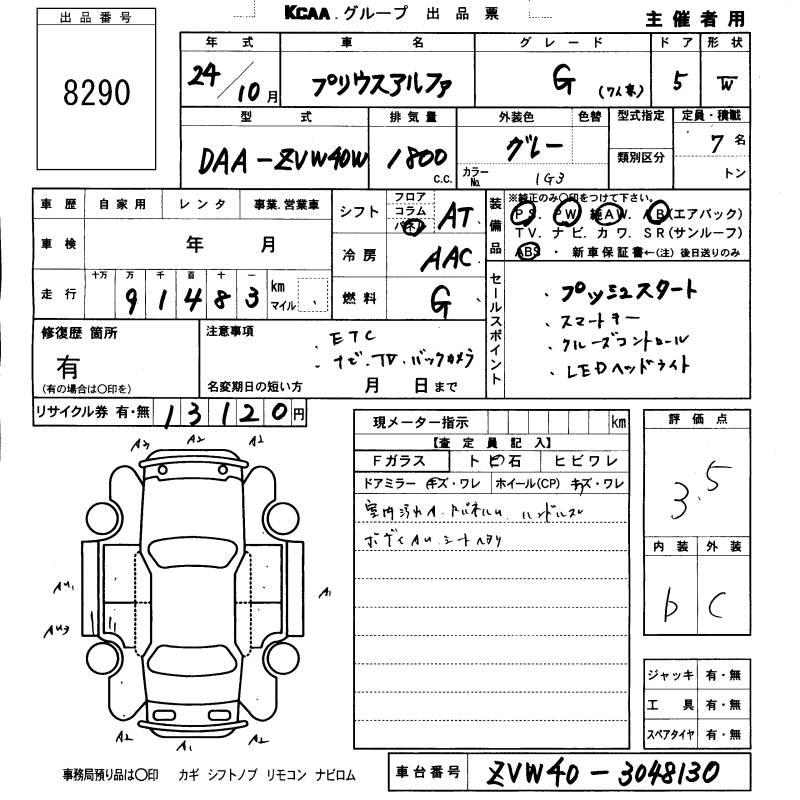 出品番号
8290
KCAA.グループ 出品票
主催者用
年式 車名 グレード ドア 形状
24/10月 プリウスアルファ G (7人乗) 5 W
型式 排気量 外装色 色替 型式指定 定員・積載
DAA-ZVW40W 1800 c.c. グレー 7名
カラーNo. 1G3 類別区分 トン
車歴 自家用 レンタ 事業.営業車
車検 年 月
走行 十万 万 千 百 十 一
9 1 4 8 3 km マイル
シフト フロア コラム パネル AT
冷房 AAC
燃料 G
装備品
※純正のみ〇印をつけて下さい。
PS. PW 純AW. AB(エアバック)
TV. ナビ. カワ. SR(サンルーフ)
ABS ・ 新車保証書←(注) 後日送りのみ
セールスポイント
・プッシュスタート
・スマートキー
・クルーズコントロール
・LEDヘッドライト
修復歴 箇所
有
(有の場合は〇印を)
注意事項
・ETC
・ナビ.TV.バックカメラ
名変期日の短い方 月 日まで
リサイクル券 有・無 13120円
現メーター指示 km
【査定員記入】
Fガラス トビ石 ヒビワレ
ドアミラー キズ・ワレ ホイール(CP) キズ・ワレ
室内汚れA.ドパネルU. ハンドルスレ
ボディAU.シートヘタリ
評価点
3.5
内装 外装
b C
ジャッキ 有・無
工具 有・無
スペアタイヤ 有・無
A3 A2 A2
AU1 A1
AU3
A2 A1 A2
事務局預り品は〇印 カギ シフトノブ リモコン ナビロム
車台番号 ZVW40-3048130